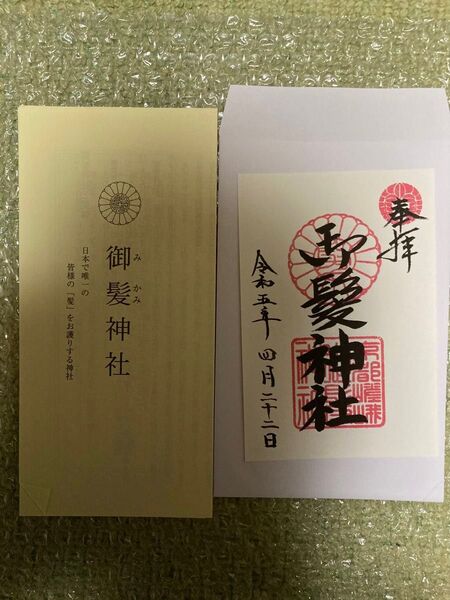 みかみ
御髪神社
日本で唯一の
皆様の「髪」をお護りする神社
奉拝
御髪神社
令和五年 四月二十二日